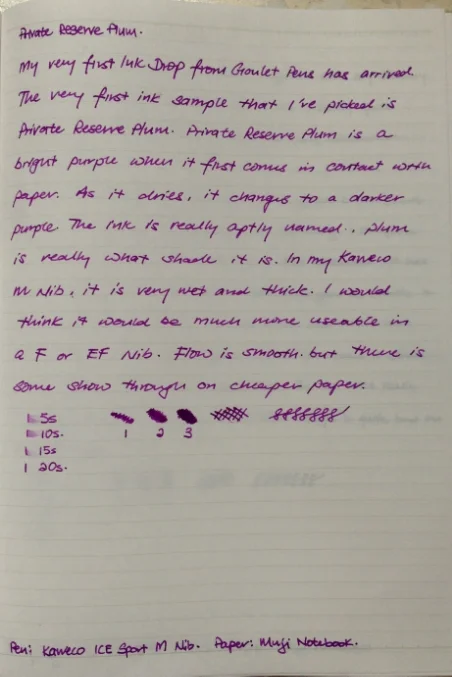 Private Reserve Plum.
My very first Ink Drop from Goulet Pens has arrived.
The very first ink sample that I've picked is
Private Reserve Plum. Private Reserve Plum is a
bright purple when it first comes in contact with
paper. As it dries, it changes to a darker
purple. The ink is really aptly named., plum
is really what shade it is. In my Kaweco
M Nib, it is very wet and thick. I would
think it would be much more useable in
a F or EF Nib. Flow is smooth. but there is
some show through on cheaper paper.
5s
10s.
15s
20s.
1 2 3
Pen: Kaweco ICE Sport M Nib. Paper: Muji Notebook.